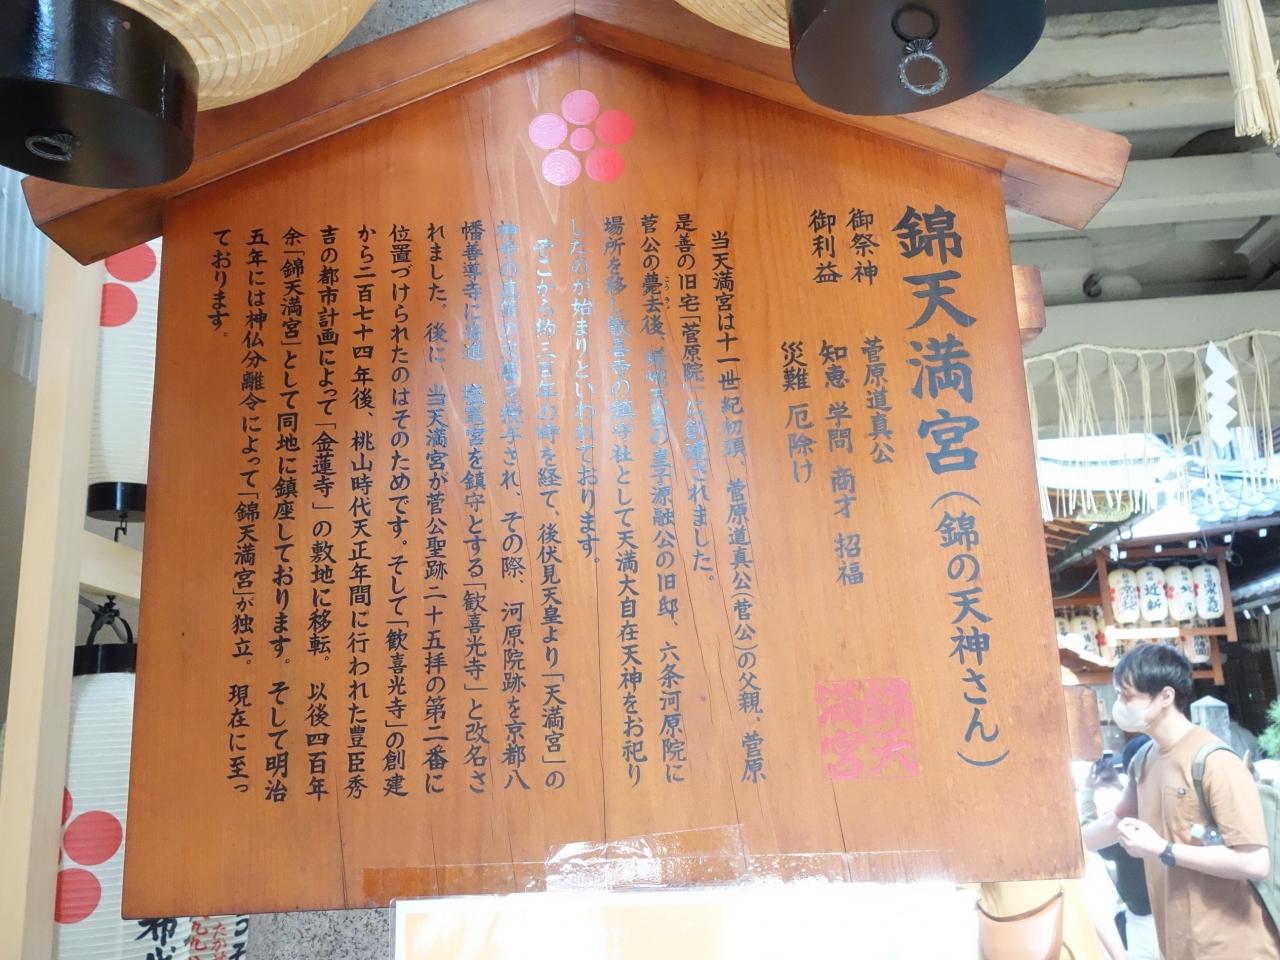 錦天満宮（錦の天神さん）
御祭神 菅原道真公
御利益 知恵 学問 商才 招福
災難 厄除け
錦天
満宮
当天満宮は十一世紀初頭、菅原道真公（菅公）の父親、菅原
是善の旧宅「菅原院」に創建されました。
菅公の薨去後、嵯峨天皇の皇子源融公の旧邸、六条河原院に
こうきょ
場所を移し歓喜寺の鎮守社として天満大自在天神をお祀り
したのが始まりといわれております。
そこから約三百年の時を経て、後伏見天皇より「天満宮」の
神号の を授与され、その際、河原院跡を京都八
幡善導寺に 、塩竈宮を鎮守とする「歓喜光寺」と改名さ
れました。後に、当天満宮が菅公聖跡二十五拝の第二番に
位置づけられたのはそのためです。そして「歓喜光寺」の創建
から二百七十四年後、桃山時代天正年間に行われた豊臣秀
吉の都市計画によって「金蓮寺」の敷地に移転。以後四百年
余「錦天満宮」として同地に鎮座しております。そして明治
五年には神仏分離令によって「錦天満宮」が独立。現在に至っ
ております。